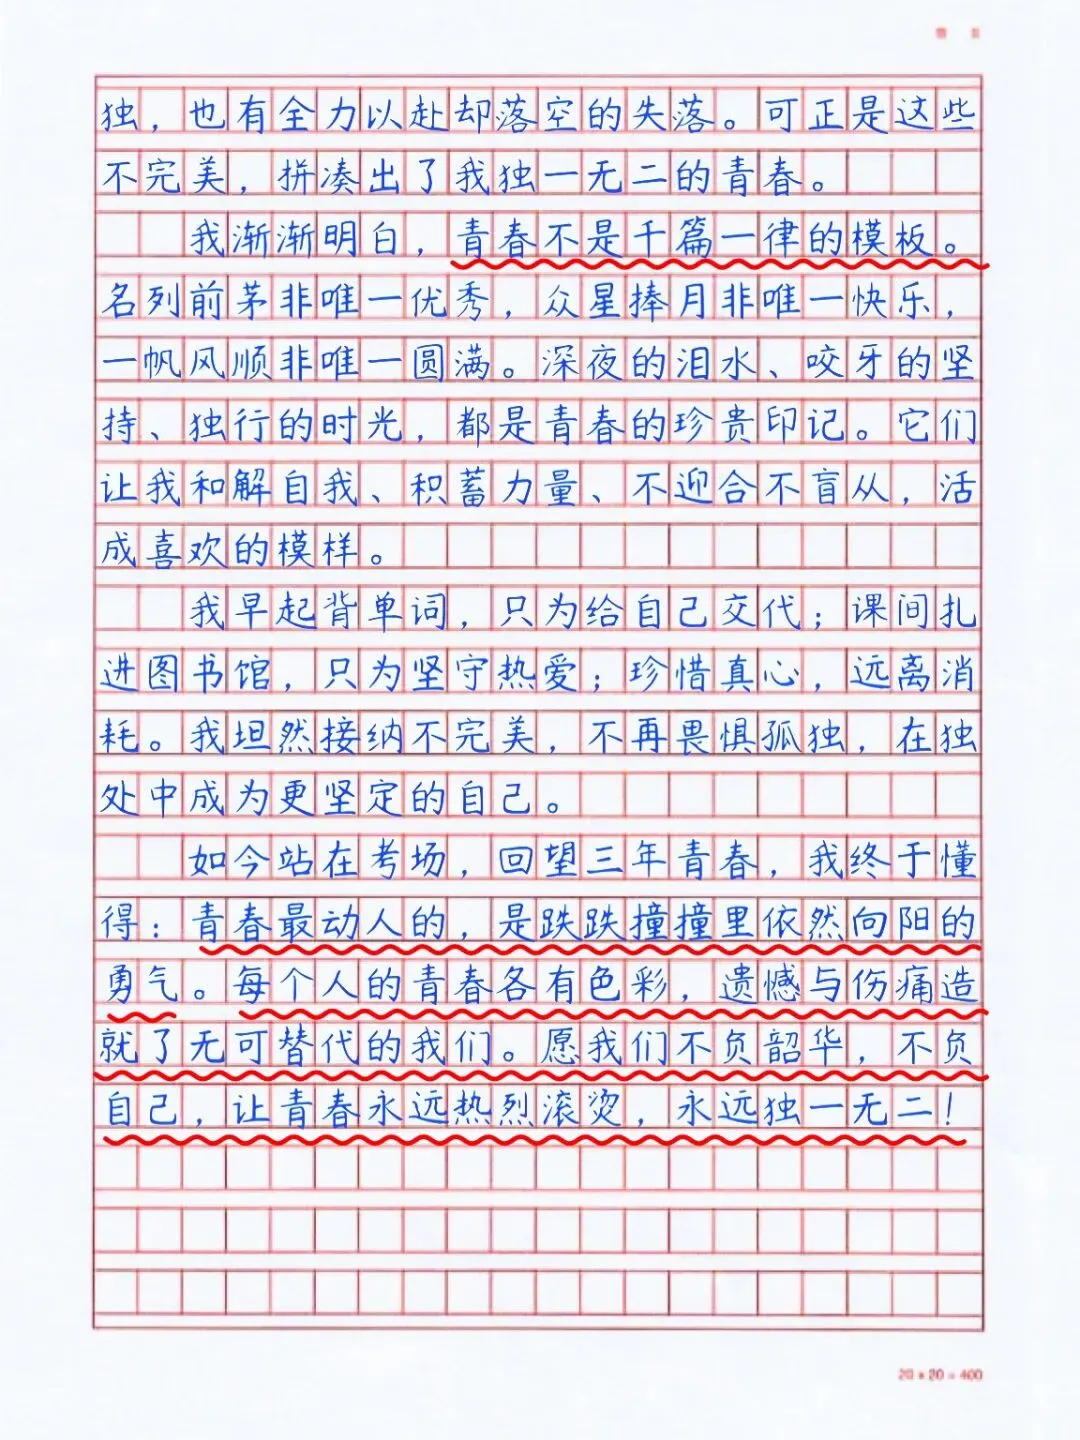 独，也有全力以赴却落空的失落。可正是这些
不完美，拼凑出了我独一无二的青春。
我渐渐明白，青春不是千篇一律的模板。
名列前茅非唯一优秀，众星捧月非唯一快乐，
一帆风顺非唯一圆满。深夜的泪水、咬牙的坚
持、独行的时光，都是青春的珍贵印记。它们
让我和解自我、积蓄力量、不迎合不盲从，活
成喜欢的模样。
我早起背单词，只为给自己交代；课间扎
进图书馆，只为坚守热爱；珍惜真心，远离消
耗。我坦然接纳不完美，不再畏惧孤独，在独
处中成为更坚定的自己。
如今站在考场，回望三年青春，我终于懂
得：青春最动人的，是跌跌撞撞里依然向阳的
勇气。每个人的青春各有色彩，遗憾与伤痛造
就了无可替代的我们。愿我们不负韶华，不负
自己，让青春永远热烈滚烫，永远独一无二！
20×20=400